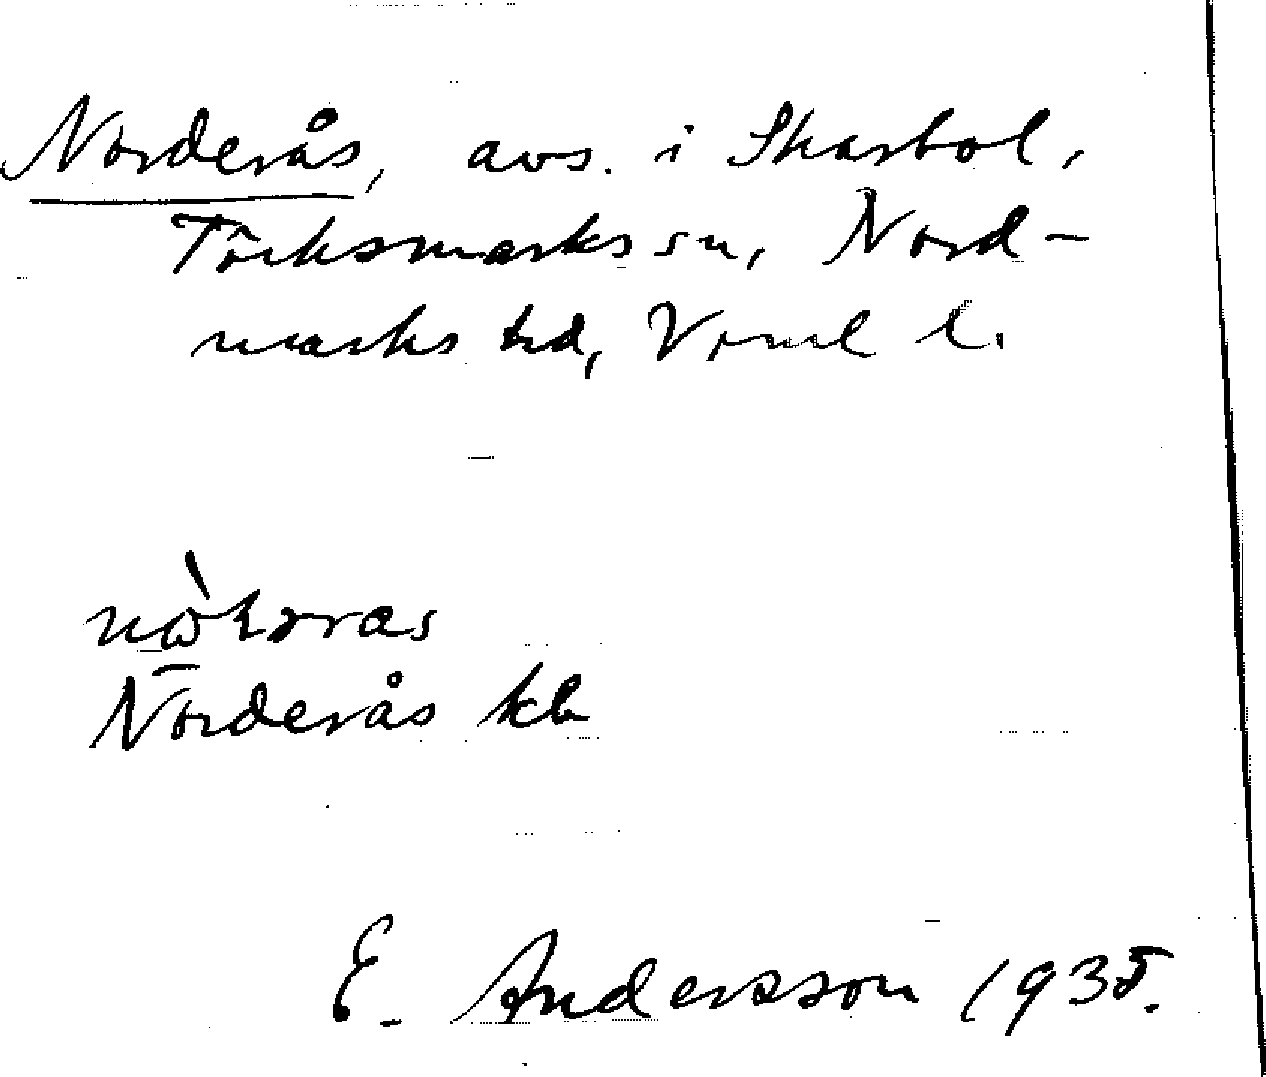 Norderås, avs. i Skarbol,
Töcksmarks sn, Nord-
marks hd, Vrml l.
Norderås kb
E. Andersson 1935.